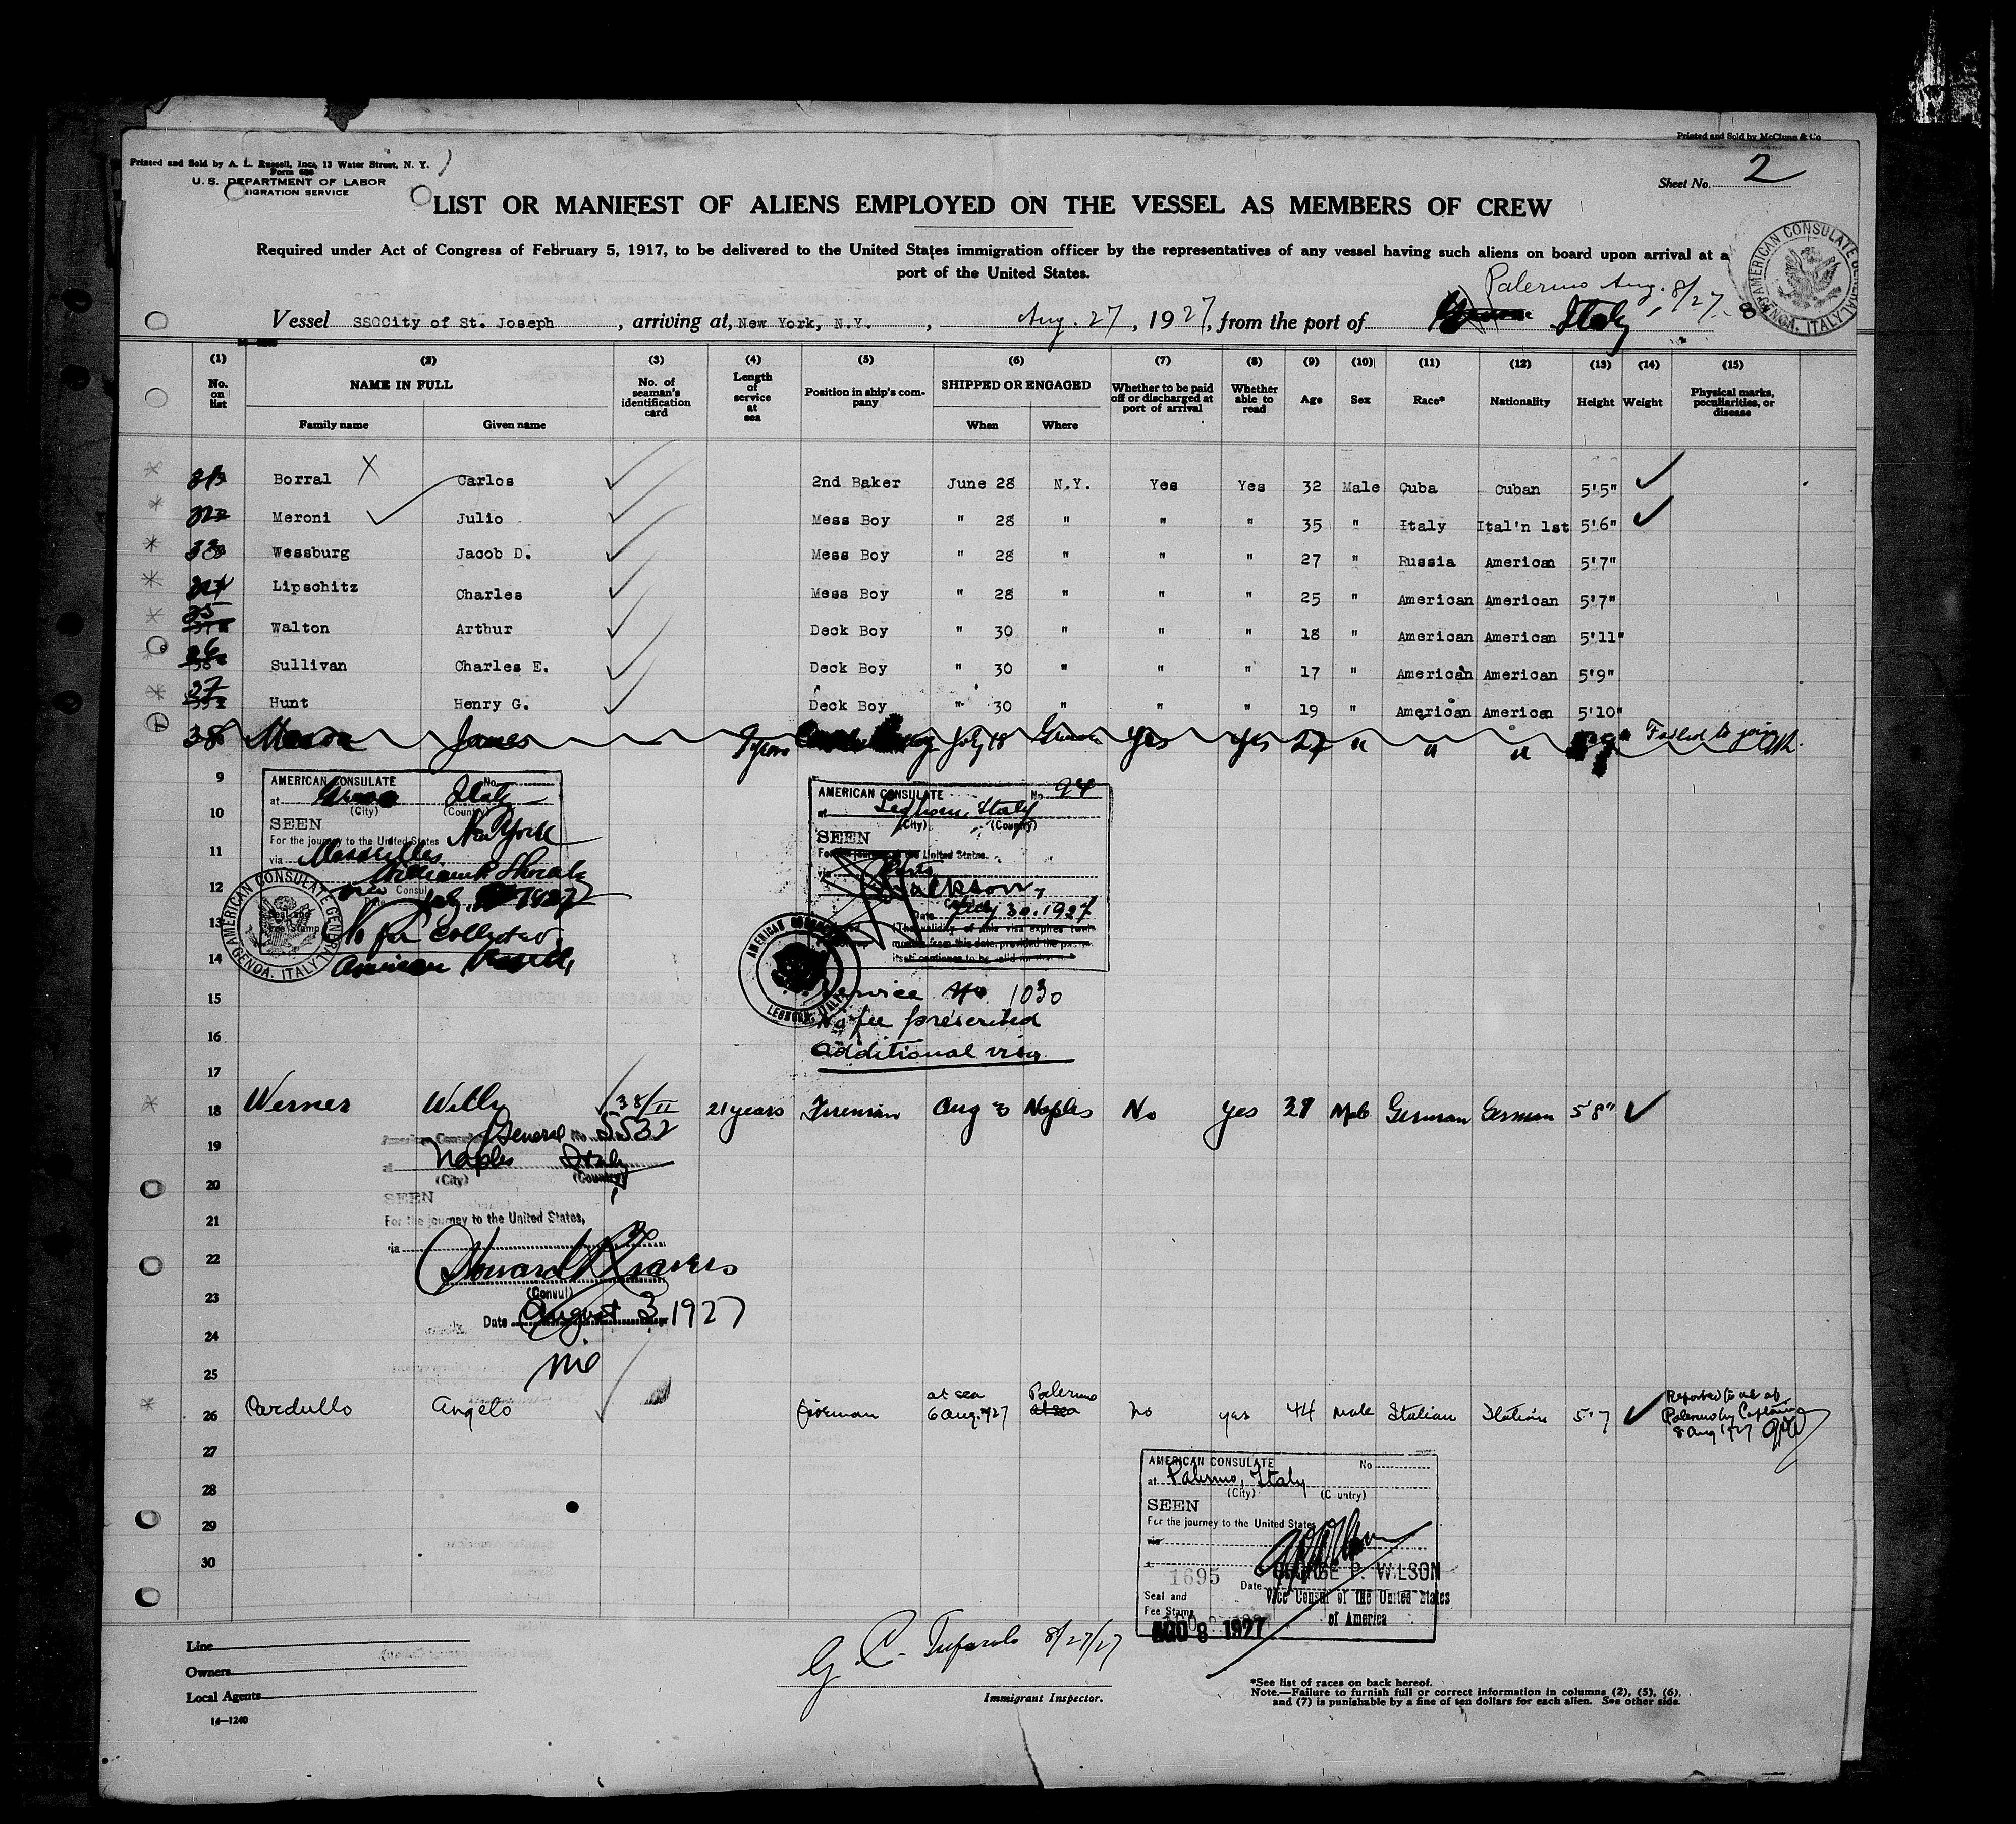 Printed and Sold by McClunn & Co
Printed and Sold by A. L. Russell, Inc., 13 Water Street, N. Y.
Form 689
U. S. DEPARTMENT OF LABOR
MIGRATION SERVICE
Sheet No. 2
LIST OR MANIFEST OF ALIENS EMPLOYED ON THE VESSEL AS MEMBERS OF CREW
Required under Act of Congress of February 5, 1917, to be delivered to the United States immigration officer by the representatives of any vessel having such aliens on board upon arrival at a
port of the United States.
AMERICAN CONSULATE GENERAL GENOA, ITALY
Palermo Aug. 8/27
Vessel SSOCity of St. Joseph, arriving at, New York, N.Y., Aug. 27, 1927, from the port of Italy
(1) (2) (3) (4) (5) (6) (7) (8) (9) (10) (11) (12) (13) (14) (15)
No. on list NAME IN FULL No. of seaman's identification card Length of service at sea Position in ship's company SHIPPED OR ENGAGED Whether to be paid off or discharged at port of arrival Whether able to read Age Sex Race* Nationality Height Weight Physical marks, peculiarities, or disease
Family name Given name When Where
Borral X Carlos 2nd Baker June 28 N.Y. Yes Yes 32 Male Cuba Cuban 5'5"
Meroni Julio Mess Boy " 28 " " " 35 " Italy Ital'n 1st 5'6"
Wessburg Jacob D. Mess Boy " 28 " " " 27 " Russia American 5'7"
Lipschitz Charles Mess Boy " 28 " " " 25 " American American 5'7"
Walton Arthur Deck Boy " 30 " " " 18 " American American 5'11"
Sullivan Charles E. Deck Boy " 30 " " " 17 " American American 5'9"
Hunt Henry G. Deck Boy " 30 " " " 19 " American American 5'10"
38 James 7 years July 18 Genoa Yes Yes 27 " " " Failed to join
9
10
11
12
13
14
15
16
17
AMERICAN CONSULATE No.
at Genoa Italy
(City) (Country)
SEEN
For the journey to the United States New York
via Marseilles
Vice Consul
July 1927
No fee collected
American Vessel
AMERICAN CONSULATE GENERAL GENOA, ITALY
AMERICAN CONSULATE No. 94
at Leghorn, Italy
(City) (Country)
SEEN
For the journey to the United States
via Ports
Jackson,
Date July 30, 1927
(The validity of this visa expires twelve
months from this date, provided the
itself continues to be valid for that
LEGHORN, ITALY
Service No 1030
No fee prescribed
additional visa
18 Werner Willy 38/II 21 years Fireman Aug 3 Naples No yes 38 Male German German 5'8"
American Consulate General No. 5532
at Naples Italy
(City) (Country)
SEEN
For the journey to the United States,
via
Howard
(Consul)
Date August 3 1927
19
20
21
22
23
24
25
26 Cardullo Angelo fireman at sea 6 Aug. 927 Palermo at sea no yes 44 male Italian Italian 5'7 Reported to me at Palermo by Captain 8 Aug 1927
27
28
29
30
AMERICAN CONSULATE No
at Palermo, Italy
(City) (Country)
SEEN
For the journey to the United States
via
1695 Date
GEORGE P. WILSON
Vice Consul of the United States
of America
Seal and
Fee Stamp
AUG 8 1927
Line
Owners
Local Agents
14—1240
8/27/27
Immigrant Inspector.
*See list of races on back hereof.
Note.—Failure to furnish full or correct information in columns (2), (5), (6),
and (7) is punishable by a fine of ten dollars for each alien. See other side.